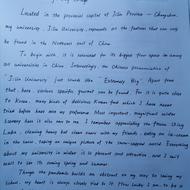 Located in the provincial capital of Jilin Province - Changchun,
my university, Jilin University, represents all the features that can only
be found in the Northeast part of China.
To begin with, it is renowned for its biggest floor space among
all universities in China. Interestingly, the Chinese pronunciation of
"Jilin University" just sounds like "Extremely Big". Apart from
that, here, various specific gourmet can be found. For it is quite close
to Korea, many kinds of delicious Korean food which I have never
tried before have won my preference. Most important, magnificent winter
scenery here is also one to me. I remember appreciating the
Lake, cleaning heavy but clean snow with my friends, eating an ice-cream
in the snow, taking an unique picture of the snow-capped world. Everything
about my university in winter is pleasant and attractive, and I can't
wait to see its coming spring and summer.
Though the pandemic builds an obstacle on my way to seeing my
school, my heart is always closely tied to it. How lucky I am to be